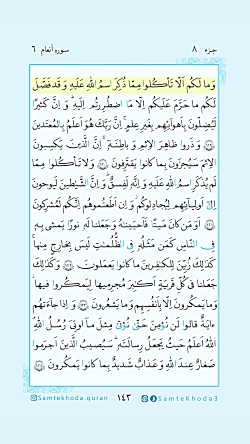 جزء ۸
سوره أنعام ۶
وَما لَكُم أَلّا تَأكُلوا مِمّا ذُكِرَ اسمُ اللَّهِ عَلَيهِ وَقَد فَصَّلَ
لَكُم ما حَرَّمَ عَلَيكُم إِلّا مَا اضطُرِرتُم إِلَيهِ وَإِنَّ كَثيرًا
لَيُضِلّونَ بِأَهوائِهِم بِغَيرِ عِلمٍ إِنَّ رَبَّكَ هُوَ أَعلَمُ بِالمُعتَدينَ
۱۱۹ وَذَروا ظاهِرَ الإِثمِ وَباطِنَهُ إِنَّ الَّذينَ يَكسِبونَ
الإِثمَ سَيُجزَونَ بِما كانوا يَقتَرِفونَ ۱۲۰ وَلا تَأكُلوا مِمّا
لَم يُذكَرِ اسمُ اللَّهِ عَلَيهِ وَإِنَّهُ لَفِسقٌ وَإِنَّ الشَّياطينَ لَيوحونَ
إِلىٰ أَولِيائِهِم لِيُجادِلوكُم وَإِن أَطَعتُموهُم إِنَّكُم لَمُشرِكونَ
۱۲۱ أَوَمَن كانَ مَيتًا فَأَحيَيناهُ وَجَعَلنا لَهُ نورًا يَمشي بِهِ
فِي النّاسِ كَمَن مَثَلُهُ فِي الظُّلُماتِ لَيسَ بِخارِجٍ مِنها
كَذٰلِكَ زُيِّنَ لِلكافِرينَ ما كانوا يَعمَلونَ ۱۲۲ وَكَذٰلِكَ
جَعَلنا في كُلِّ قَريَةٍ أَكابِرَ مُجرِميها لِيَمكُروا فيها
وَما يَمكُرونَ إِلّا بِأَنفُسِهِم وَما يَشعُرونَ ۱۲۳ وَإِذا جاءَتهُم
ءايَةٌ قالوا لَن نُؤمِنَ حَتّىٰ نُؤتىٰ مِثلَ ما أوتِيَ رُسُلُ اللَّهِ
اللَّهُ أَعلَمُ حَيثُ يَجعَلُ رِسالَتَهُ سَيُصيبُ الَّذينَ أَجرَموا
صَغارٌ عِندَ اللَّهِ وَعَذابٌ شَديدٌ بِما كانوا يَمكُرونَ ۱۲۴
Samtekhoda.quran
۱۴۳
SamteKhoda3